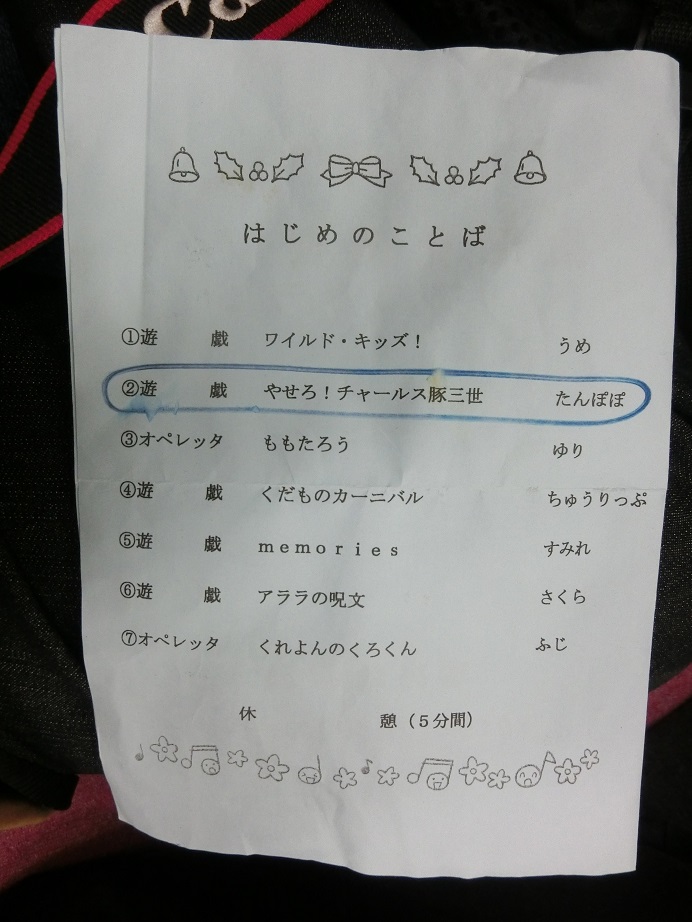 はじめのことば
①遊戯 ワイルド・キッズ! うめ
②遊戯 やせろ!チャールス豚三世 たんぽぽ
③オペレッタ ももたろう ゆり
④遊戯 くだものカーニバル ちゅうりっぷ
⑤遊戯 memories すみれ
⑥遊戯 アララの呪文 さくら
⑦オペレッタ くれよんのくろくん ふじ
休憩(5分間)